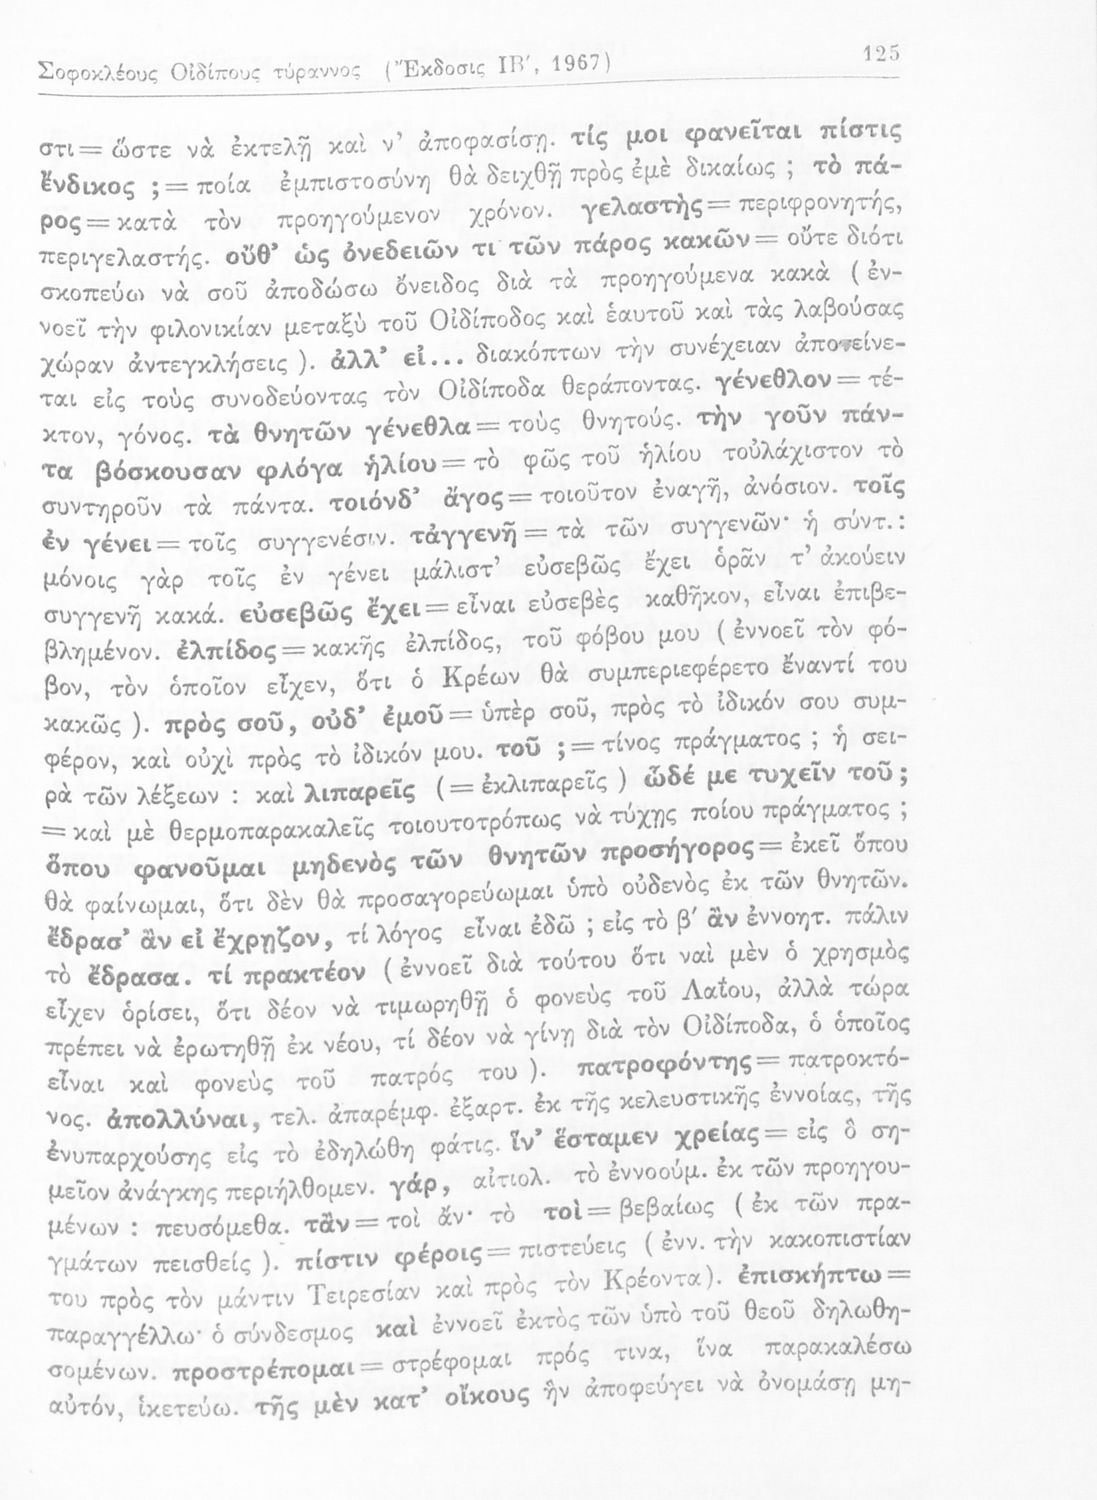 Σοφοκλέους Οἰδίπους τύραννος (Ἔκδοσις ΙΒ′, 1967) 125
στι = ὥστε νὰ ἐκτελῇ καὶ ν’ ἀποφασίσῃ. τίς μοι φανεῖται πίστις
ἔνδικος ; = ποία ἐμπιστοσύνη θὰ δειχθῇ πρὸς ἐμὲ δικαίως ; τὸ πά-
ρος = κατὰ τὸν προηγούμενον χρόνον. γελαστὴς = περιφρονητής,
περιγελαστής. οὔθ’ ὡς ὀνεδειῶν τι τῶν πάρος κακῶν = οὔτε διότι
σκοπεύω νὰ σοῦ ἀποδώσω ὄνειδος διὰ τὰ προηγούμενα κακὰ ( ἐν-
νοεῖ τὴν φιλονικίαν μεταξὺ τοῦ Οἰδίποδος καὶ ἑαυτοῦ καὶ τὰς λαβούσας
χώραν ἀντεγκλήσεις ). ἀλλ’ εἰ... διακόπτων τὴν συνέχειαν ἀποτείνε-
ται εἰς τοὺς συνοδεύοντας τὸν Οἰδίποδα θεράποντας. γένεθλον = τέ-
κτον, γόνος. τὰ θνητῶν γένεθλα = τοὺς θνητούς. τὴν γοῦν πάν-
τα βόσκουσαν φλόγα ἡλίου = τὸ φῶς τοῦ ἡλίου τοὐλάχιστον τὸ
συντηροῦν τὰ πάντα. τοιόνδ’ ἄγος = τοιοῦτον ἐναγῆ, ἀνόσιον. τοῖς
ἐν γένει = τοῖς συγγενέσιν. τἀγγενῆ = τὰ τῶν συγγενῶν· ἡ σύντ.:
μόνοις γὰρ τοῖς ἐν γένει μάλιστ’ εὐσεβῶς ἔχει ὁρᾶν τ’ ἀκούειν
συγγενῆ κακά. εὐσεβῶς ἔχει = εἶναι εὐσεβὲς καθῆκον, εἶναι ἐπιβε-
βλημένον. ἐλπίδος = κακῆς ἐλπίδος, τοῦ φόβου μου ( ἐννοεῖ τὸν φό-
βον, τὸν ὁποῖον εἶχεν, ὅτι ὁ Κρέων θὰ συμπεριεφέρετο ἔναντί του
κακῶς ). πρὸς σοῦ, οὐδ’ ἐμοῦ = ὑπὲρ σοῦ, πρὸς τὸ ἰδικόν σου συμ-
φέρον, καὶ οὐχὶ πρὸς τὸ ἰδικόν μου. τοῦ ; = τίνος πράγματος ; ἡ σει-
ρὰ τῶν λέξεων : καὶ λιπαρεῖς ( = ἐκλιπαρεῖς ) ὧδέ με τυχεῖν τοῦ ;
= καὶ μὲ θερμοπαρακαλεῖς τοιουτοτρόπως νὰ τύχῃς ποίου πράγματος ;
ὅπου φανοῦμαι μηδενὸς τῶν θνητῶν προσήγορος = ἐκεῖ ὅπου
θὰ φαίνωμαι, ὅτι δὲν θὰ προσαγορεύωμαι ὑπὸ οὐδενὸς ἐκ τῶν θνητῶν.
ἔδρασ’ ἂν εἰ ἔχρῃζον, τί λόγος εἶναι ἐδῶ ; εἰς τὸ β′ ἂν ἐννοητ. πάλιν
τὸ ἔδρασα. τί πρακτέον ( ἐννοεῖ διὰ τούτου ὅτι ναὶ μὲν ὁ χρησμὸς
εἶχεν ὁρίσει, ὅτι δέον νὰ τιμωρηθῇ ὁ φονεὺς τοῦ Λαΐου, ἀλλὰ τώρα
πρέπει νὰ ἐρωτηθῇ ἐκ νέου, τί δέον νὰ γίνῃ διὰ τὸν Οἰδίποδα, ὁ ὁποῖος
εἶναι καὶ φονεὺς τοῦ πατρός του ). πατροφόντης = πατροκτό-
νος. ἀπολλύναι, τελ. ἀπαρέμφ. ἐξαρτ. ἐκ τῆς κελευστικῆς ἐννοίας, τῆς
ἐνυπαρχούσης εἰς τὸ ἐδηλώθη φάτις. ἵν’ ἕσταμεν χρείας = εἰς ὃ ση-
μεῖον ἀνάγκης περιήλθομεν. γάρ, αἰτιολ. τὸ ἐννοούμ. ἐκ τῶν προηγου-
μένων : πευσόμεθα. τἂν = τοὶ ἄν· τὸ τοὶ = βεβαίως ( ἐκ τῶν πρα-
γμάτων πεισθείς ). πίστιν φέροις = πιστεύεις ( ἐνν. τὴν κακοπιστίαν
του πρὸς τὸν μάντιν Τειρεσίαν καὶ πρὸς τὸν Κρέοντα). ἐπισκήπτω =
παραγγέλλω· ὁ σύνδεσμος καὶ ἐννοεῖ ἐκτὸς τῶν ὑπὸ τοῦ θεοῦ δηλωθη-
σομένων. προστρέπομαι = στρέφομαι πρός τινα, ἵνα παρακαλέσω
αὐτόν, ἱκετεύω. τῆς μὲν κατ’ οἴκους ἣν ἀποφεύγει νὰ ὀνομάσῃ μη-